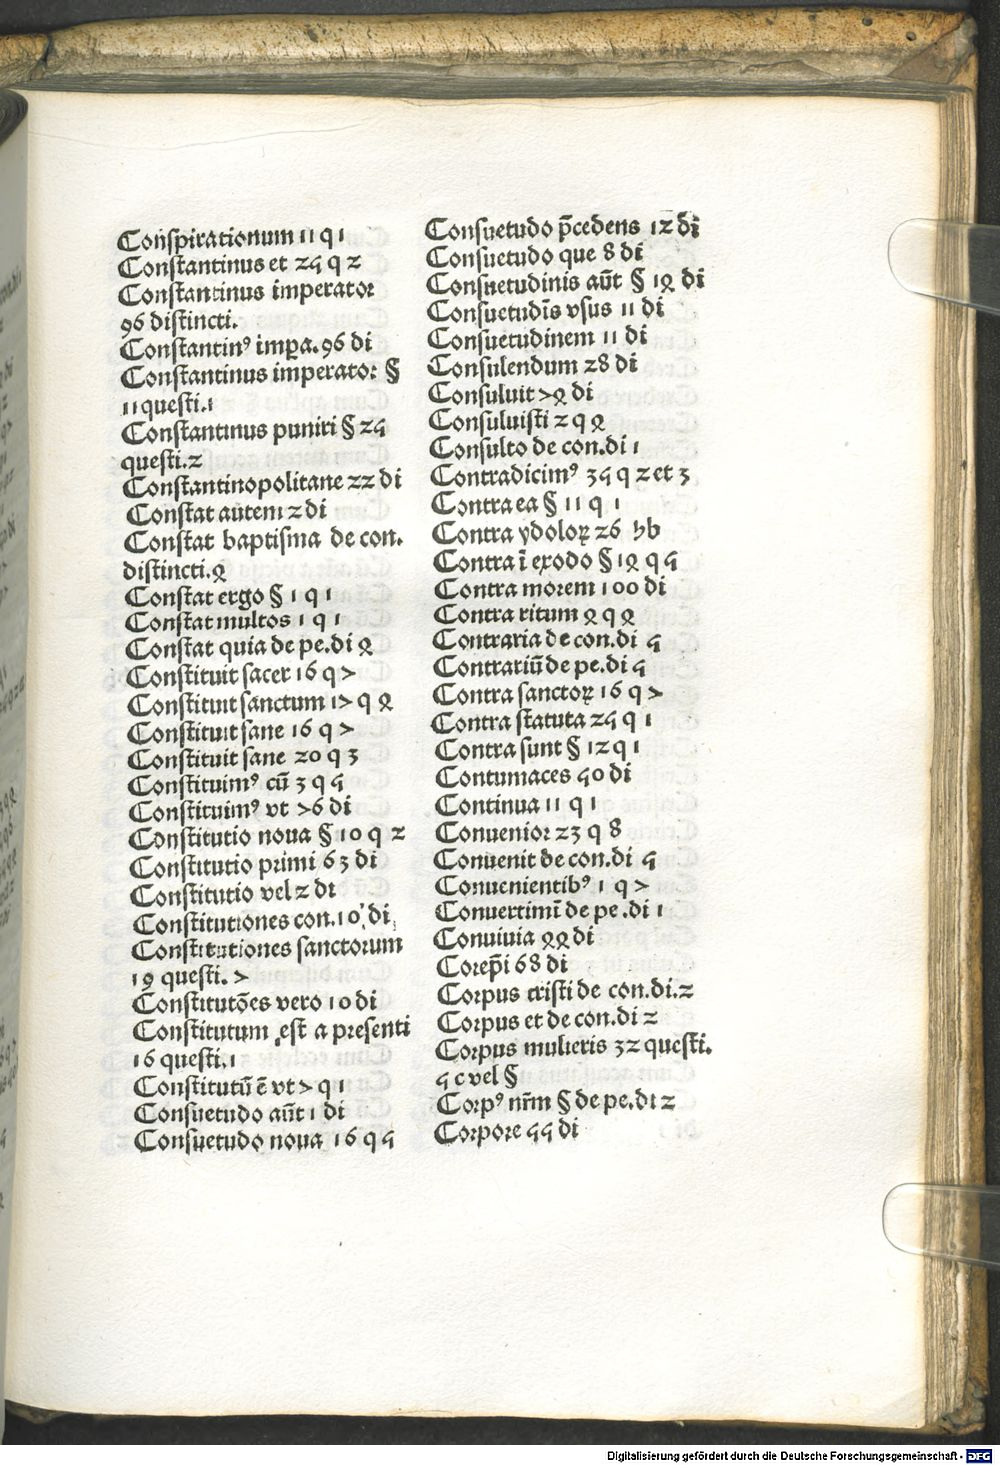 Conspirationum 11 q 1
Constantinus et 25 q 2
Constantinus imperator
96 distincti.
Constantinꝰ imꝑa. 96 di
Constantinus imperator §
11 questi. 1
Constantinus puniri § 25
questi. 2
Constantinopolitane 22 di
Constat autem 2 di
Constat baptisma de con.
distincti. 4
Constat ergo § 1 q 1
Constat multos 1 q 1
Constat quia de pe. di 4
Constituit sacer 16 q 7
Constituit sanctum 17 q 4
Constituit sane 16 q 7
Constituit sane 20 q 3
Constituimꝰ cū 3 q 5
Constituimꝰ vt 76 di
Constitutio noua § 10 q 2
Constitutio primi 63 di
Constitutio vel 2 di
Constitutiones con. 10 di
Constitutiones sanctorum
19 questi. 7
Constitutōes vero 10 di
Constitutum est a presenti
16 questi. 1
Constitutū ē vt 7 q 1
Consuetudo aūt 1 di
Consuetudo noua 16 q 5
Consuetudo p̄cedens 12 di
Consuetudo que 8 di
Consuetudinis aūt § 14 di
Consuetudīs vsus 11 di
Consuetudinem 11 di
Consulendum 28 di
Consuluit 74 di
Consuluisti 2 q 4
Consulto de con. di 1
Contradicimꝰ 35 q 2 et 3
Contra ea § 11 q 1
Contra ydoloꝝ 26 hb
Contra ī exodo § 14 q 5
Contra morem 100 di
Contra ritum 4 q 4
Contraria de con. di 5
Contrariū de pe. di 5
Contra sanctoꝝ 16 q 7
Contra statuta 25 q 1
Contra sunt § 12 q 1
Contumaces 50 di
Continua 11 q 1
Conuenior 23 q 8
Conuenit de con. di 5
Conuenientibꝰ 1 q 7
Conuertimī de pe. di 1
Conuiuia 44 di
Corep̄i 68 di
Corpus cristi de con. di. 2
Corpus et de con. di 2
Corpus mulieris 32 questi.
5 c vel §
Corpꝰ nr̄m § de pe. di 2
Corpore 55 di
Digitalisierung gefördert durch die Deutsche Forschungsgemeinschaft - DFG